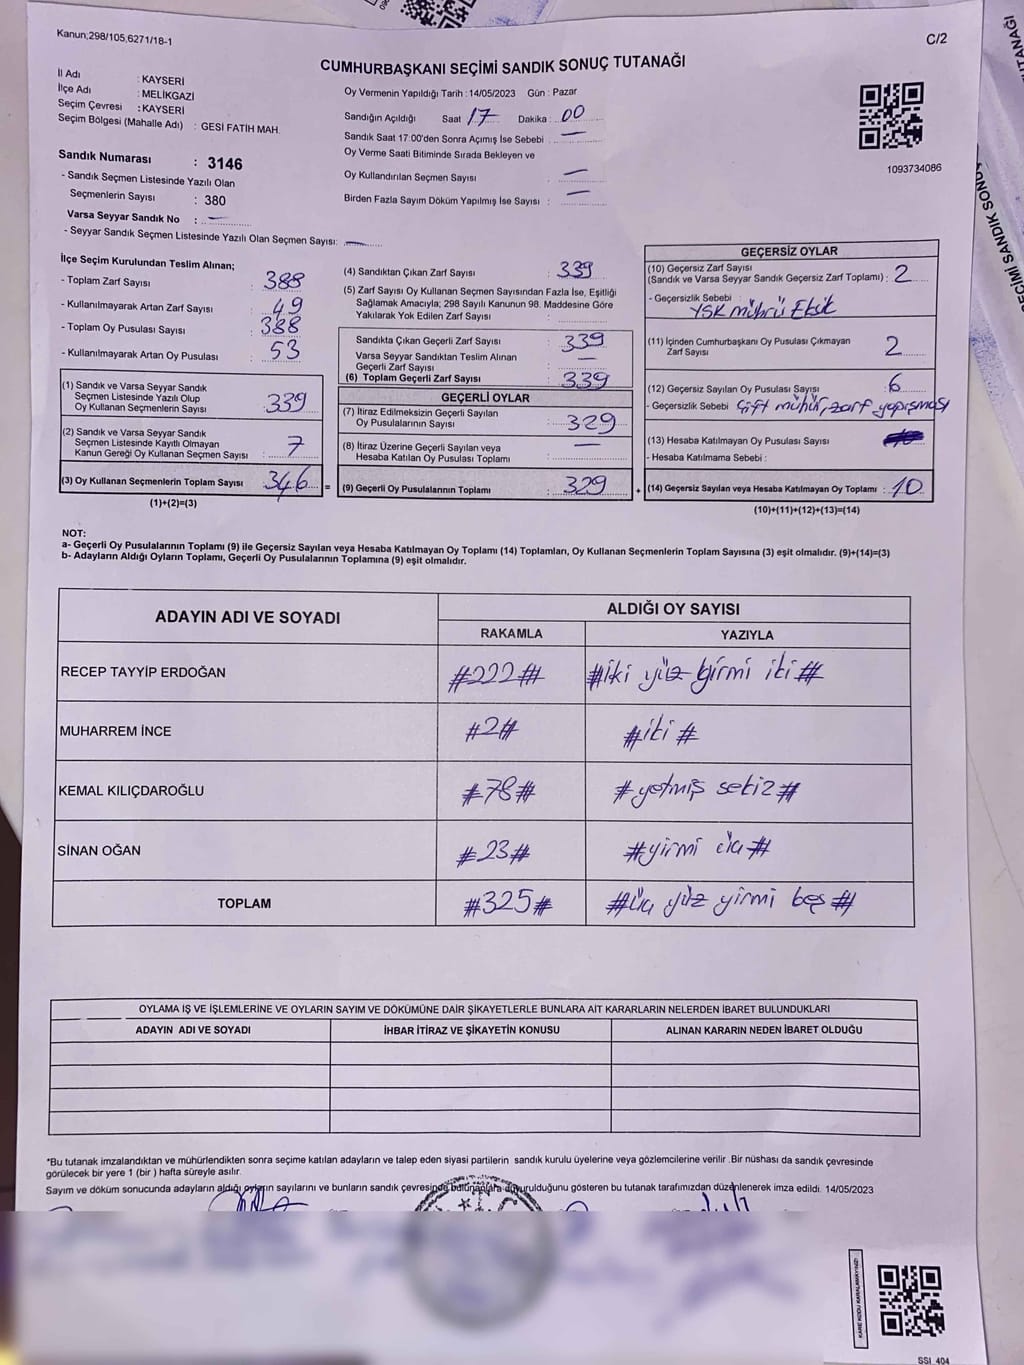 Kanun;298/105,6271/18-1
C/2
CUMHURBAŞKANI SEÇİMİ SANDIK SONUÇ TUTANAĞI
İl Adı : KAYSERİ
İlçe Adı : MELİKGAZİ
Seçim Çevresi : KAYSERİ
Seçim Bölgesi (Mahalle Adı) : GESİ FATİH MAH.
Sandık Numarası : 3146
- Sandık Seçmen Listesinde Yazılı Olan
Seçmenlerin Sayısı : 380
Varsa Seyyar Sandık No : —
- Seyyar Sandık Seçmen Listesinde Yazılı Olan Seçmen Sayısı: —
Oy Vermenin Yapıldığı Tarih : 14/05/2023 Gün : Pazar
Sandığın Açıldığı Saat 17 Dakika : 00
Sandık Saat 17:00'den Sonra Açımış İse Sebebi : —
Oy Verme Saati Bitiminde Sırada Bekleyen ve
Oy Kullandırılan Seçmen Sayısı : —
Birden Fazla Sayım Döküm Yapılmış İse Sayısı : —
1093734086
İlçe Seçim Kurulundan Teslim Alınan;
- Toplam Zarf Sayısı : 388
- Kullanılmayarak Artan Zarf Sayısı : 49
- Toplam Oy Pusulası Sayısı : 388
- Kullanılmayarak Artan Oy Pusulası : 53
(1) Sandık ve Varsa Seyyar Sandık
Seçmen Listesinde Yazılı Olup
Oy Kullanan Seçmenlerin Sayısı : 339
(2) Sandık ve Varsa Seyyar Sandık
Seçmen Listesinde Kayıtlı Olmayan
Kanun Gereği Oy Kullanan Seçmen Sayısı : 7
(3) Oy Kullanan Seçmenlerin Toplam Sayısı : 346 =
(1)+(2)=(3)
(4) Sandıktan Çıkan Zarf Sayısı : 339
(5) Zarf Sayısı Oy Kullanan Seçmen Sayısından Fazla İse, Eşitliği
Sağlamak Amacıyla; 298 Sayılı Kanunun 98. Maddesine Göre
Yakılarak Yok Edilen Zarf Sayısı :
Sandıkta Çıkan Geçerli Zarf Sayısı : 339
Varsa Seyyar Sandıktan Teslim Alınan
Geçerli Zarf Sayısı : —
(6) Toplam Geçerli Zarf Sayısı : 339
GEÇERLİ OYLAR
(7) İtiraz Edilmeksizin Geçerli Sayılan
Oy Pusulalarının Sayısı : 329
(8) İtiraz Üzerine Geçerli Sayılan veya
Hesaba Katılan Oy Pusulası Toplamı : —
(9) Geçerli Oy Pusulalarının Toplamı : 329 +
GEÇERSİZ OYLAR
(10) Geçersiz Zarf Sayısı
(Sandık ve Varsa Seyyar Sandık Geçersiz Zarf Toplamı) : 2
- Geçersizlik Sebebi : YSK mührü Eksik
(11) İçinden Cumhurbaşkanı Oy Pusulası Çıkmayan
Zarf Sayısı : 2
(12) Geçersiz Sayılan Oy Pusulası Sayısı : 6
- Geçersizlik Sebebi Çift mühür, zarf yapışması
(13) Hesaba Katılmayan Oy Pusulası Sayısı
- Hesaba Katılmama Sebebi :
(14) Geçersiz Sayılan veya Hesaba Katılmayan Oy Toplamı : 10
(10)+(11)+(12)+(13)=(14)
NOT:
a- Geçerli Oy Pusulalarının Toplamı (9) ile Geçersiz Sayılan veya Hesaba Katılmayan Oy Toplamı (14) Toplamları, Oy Kullanan Seçmenlerin Toplam Sayısına (3) eşit olmalıdır. (9)+(14)=(3)
b- Adayların Aldığı Oyların Toplamı, Geçerli Oy Pusulalarının Toplamına (9) eşit olmalıdır.
ADAYIN ADI VE SOYADI ALDIĞI OY SAYISI
RAKAMLA YAZIYLA
RECEP TAYYİP ERDOĞAN #222# #iki yüz yirmi iki#
MUHARREM İNCE #2# #iki#
KEMAL KILIÇDAROĞLU #78# #yetmiş sekiz#
SİNAN OĞAN #23# #yirmi üç#
TOPLAM #325# #üç yüz yirmi beş#
OYLAMA İŞ VE İŞLEMLERİNE VE OYLARIN SAYIM VE DÖKÜMÜNE DAİR ŞİKAYETLERLE BUNLARA AİT KARARLARIN NELERDEN İBARET BULUNDUKLARI
ADAYIN ADI VE SOYADI İHBAR İTİRAZ VE ŞİKAYETİN KONUSU ALINAN KARARIN NEDEN İBARET OLDUĞU
*Bu tutanak imzalandıktan ve mühürlendikten sonra seçime katılan adayların ve talep eden siyasi partilerin sandık kurulu üyelerine veya gözlemcilerine verilir .Bir nüshası da sandık çevresinde
görülecek bir yere 1 (bir ) hafta süreyle asılır.
Sayım ve döküm sonucunda adayların aldığı oyların sayılarını ve bunların sandık çevresinde bulunanlara duyurulduğunu gösteren bu tutanak tarafımızdan düzenlenerek imza edildi. 14/05/2023
KARE KODU KARALAMAYINIZ!
SSI_404